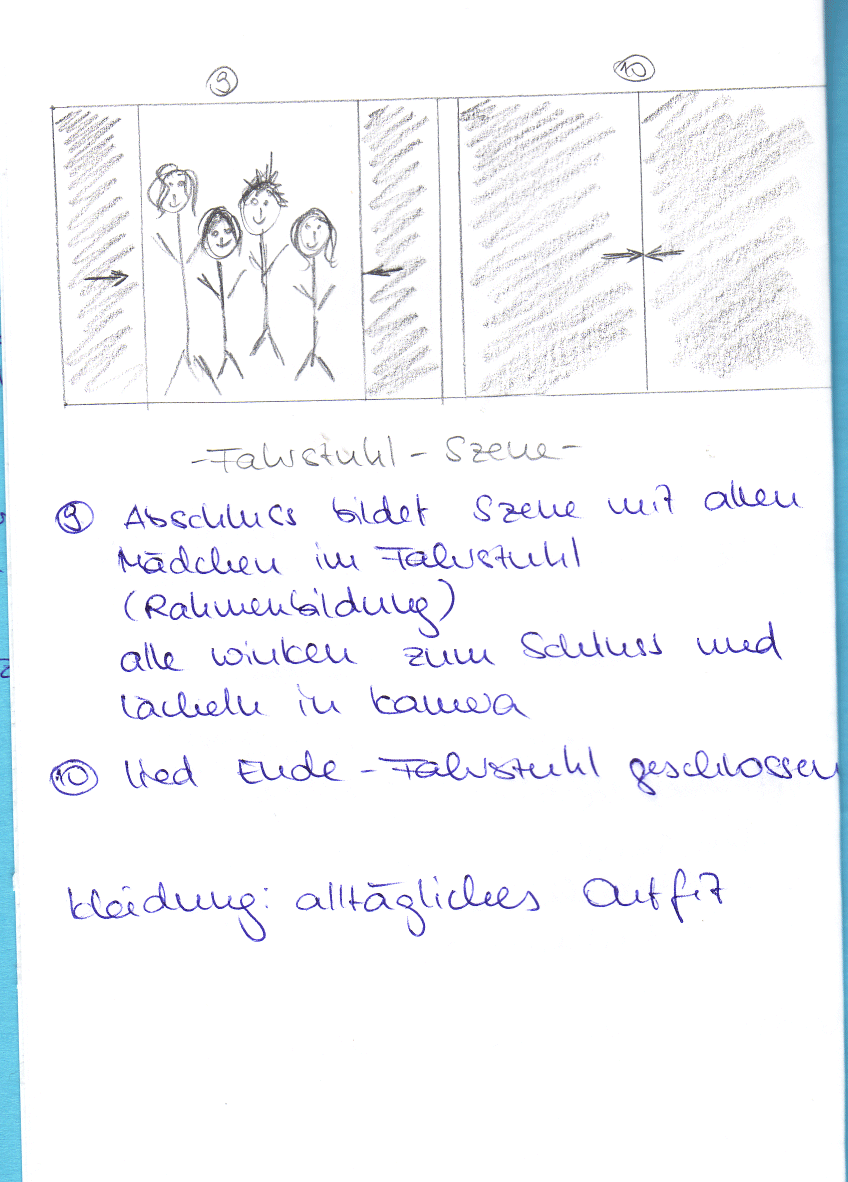 9 10
- Fahrstuhl - Szene -
9 Abschluss bildet Szene mit allen
Mädchen im Fahrstuhl
(Rahmenbildung)
alle winken zum Schluss und
lächeln in Kamera
10 Lied Ende - Fahrstuhl geschlossen
Kleidung: alltägliches Outfit